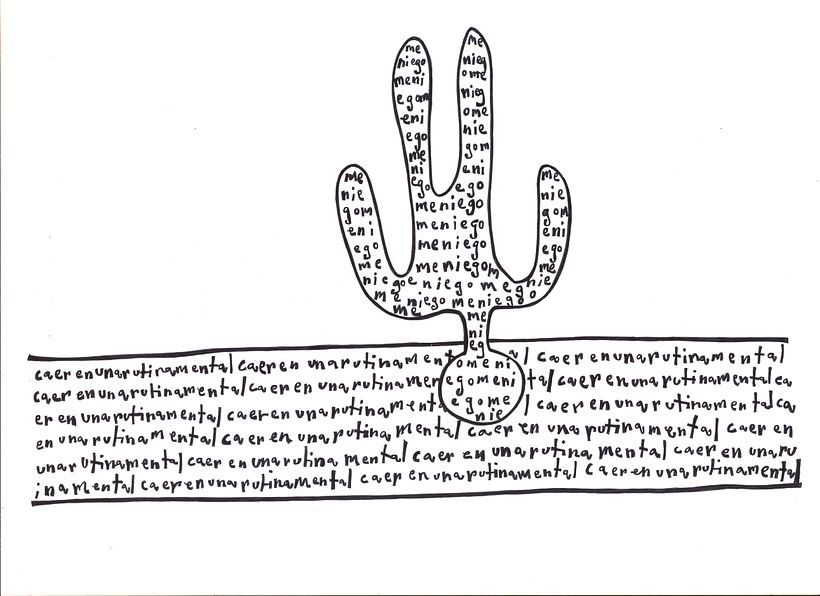 me
niego
meni
egom
eni
ego
me
ni
ego
me
nieg
ome
nieg
ome
nie
gom
eni
ego
me
nie
gom
eni
ego
me
nie
me
nie
gom
eni
ego
me
nie
meniego
meniego
meniego
meniegom
egoe niego me
me niego meniego
me
me
ni
eg
omeni
egomeni
egome
nie
caer en una rutina mental caer en una rutina ment al caer en una rutina mental
caer en una rutina mental caer en una rutina men tal caer en una rutina mental ca
er en una rutina mental caer en una rutina menta l caer en una rutina mental ca
en una rutina mental caer en una rutina mental caer en una rutina mental caer en
una rutina mental caer en una rutina mental caer en una rutina mental caer en una ru
ina mental caer en una rutina mental caer en una rutina mental caer en una rutina mental